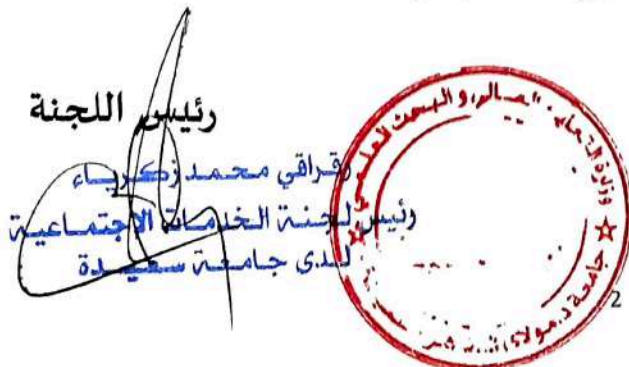 رئيس اللجنة
رقراقي محمد زكرياء
رئيس لجنة الخدمات الاجتماعية
لدى جامعة سعيدة
وزارة التعليم العالي والبحث العلمي
جامعة د.مولاي
2